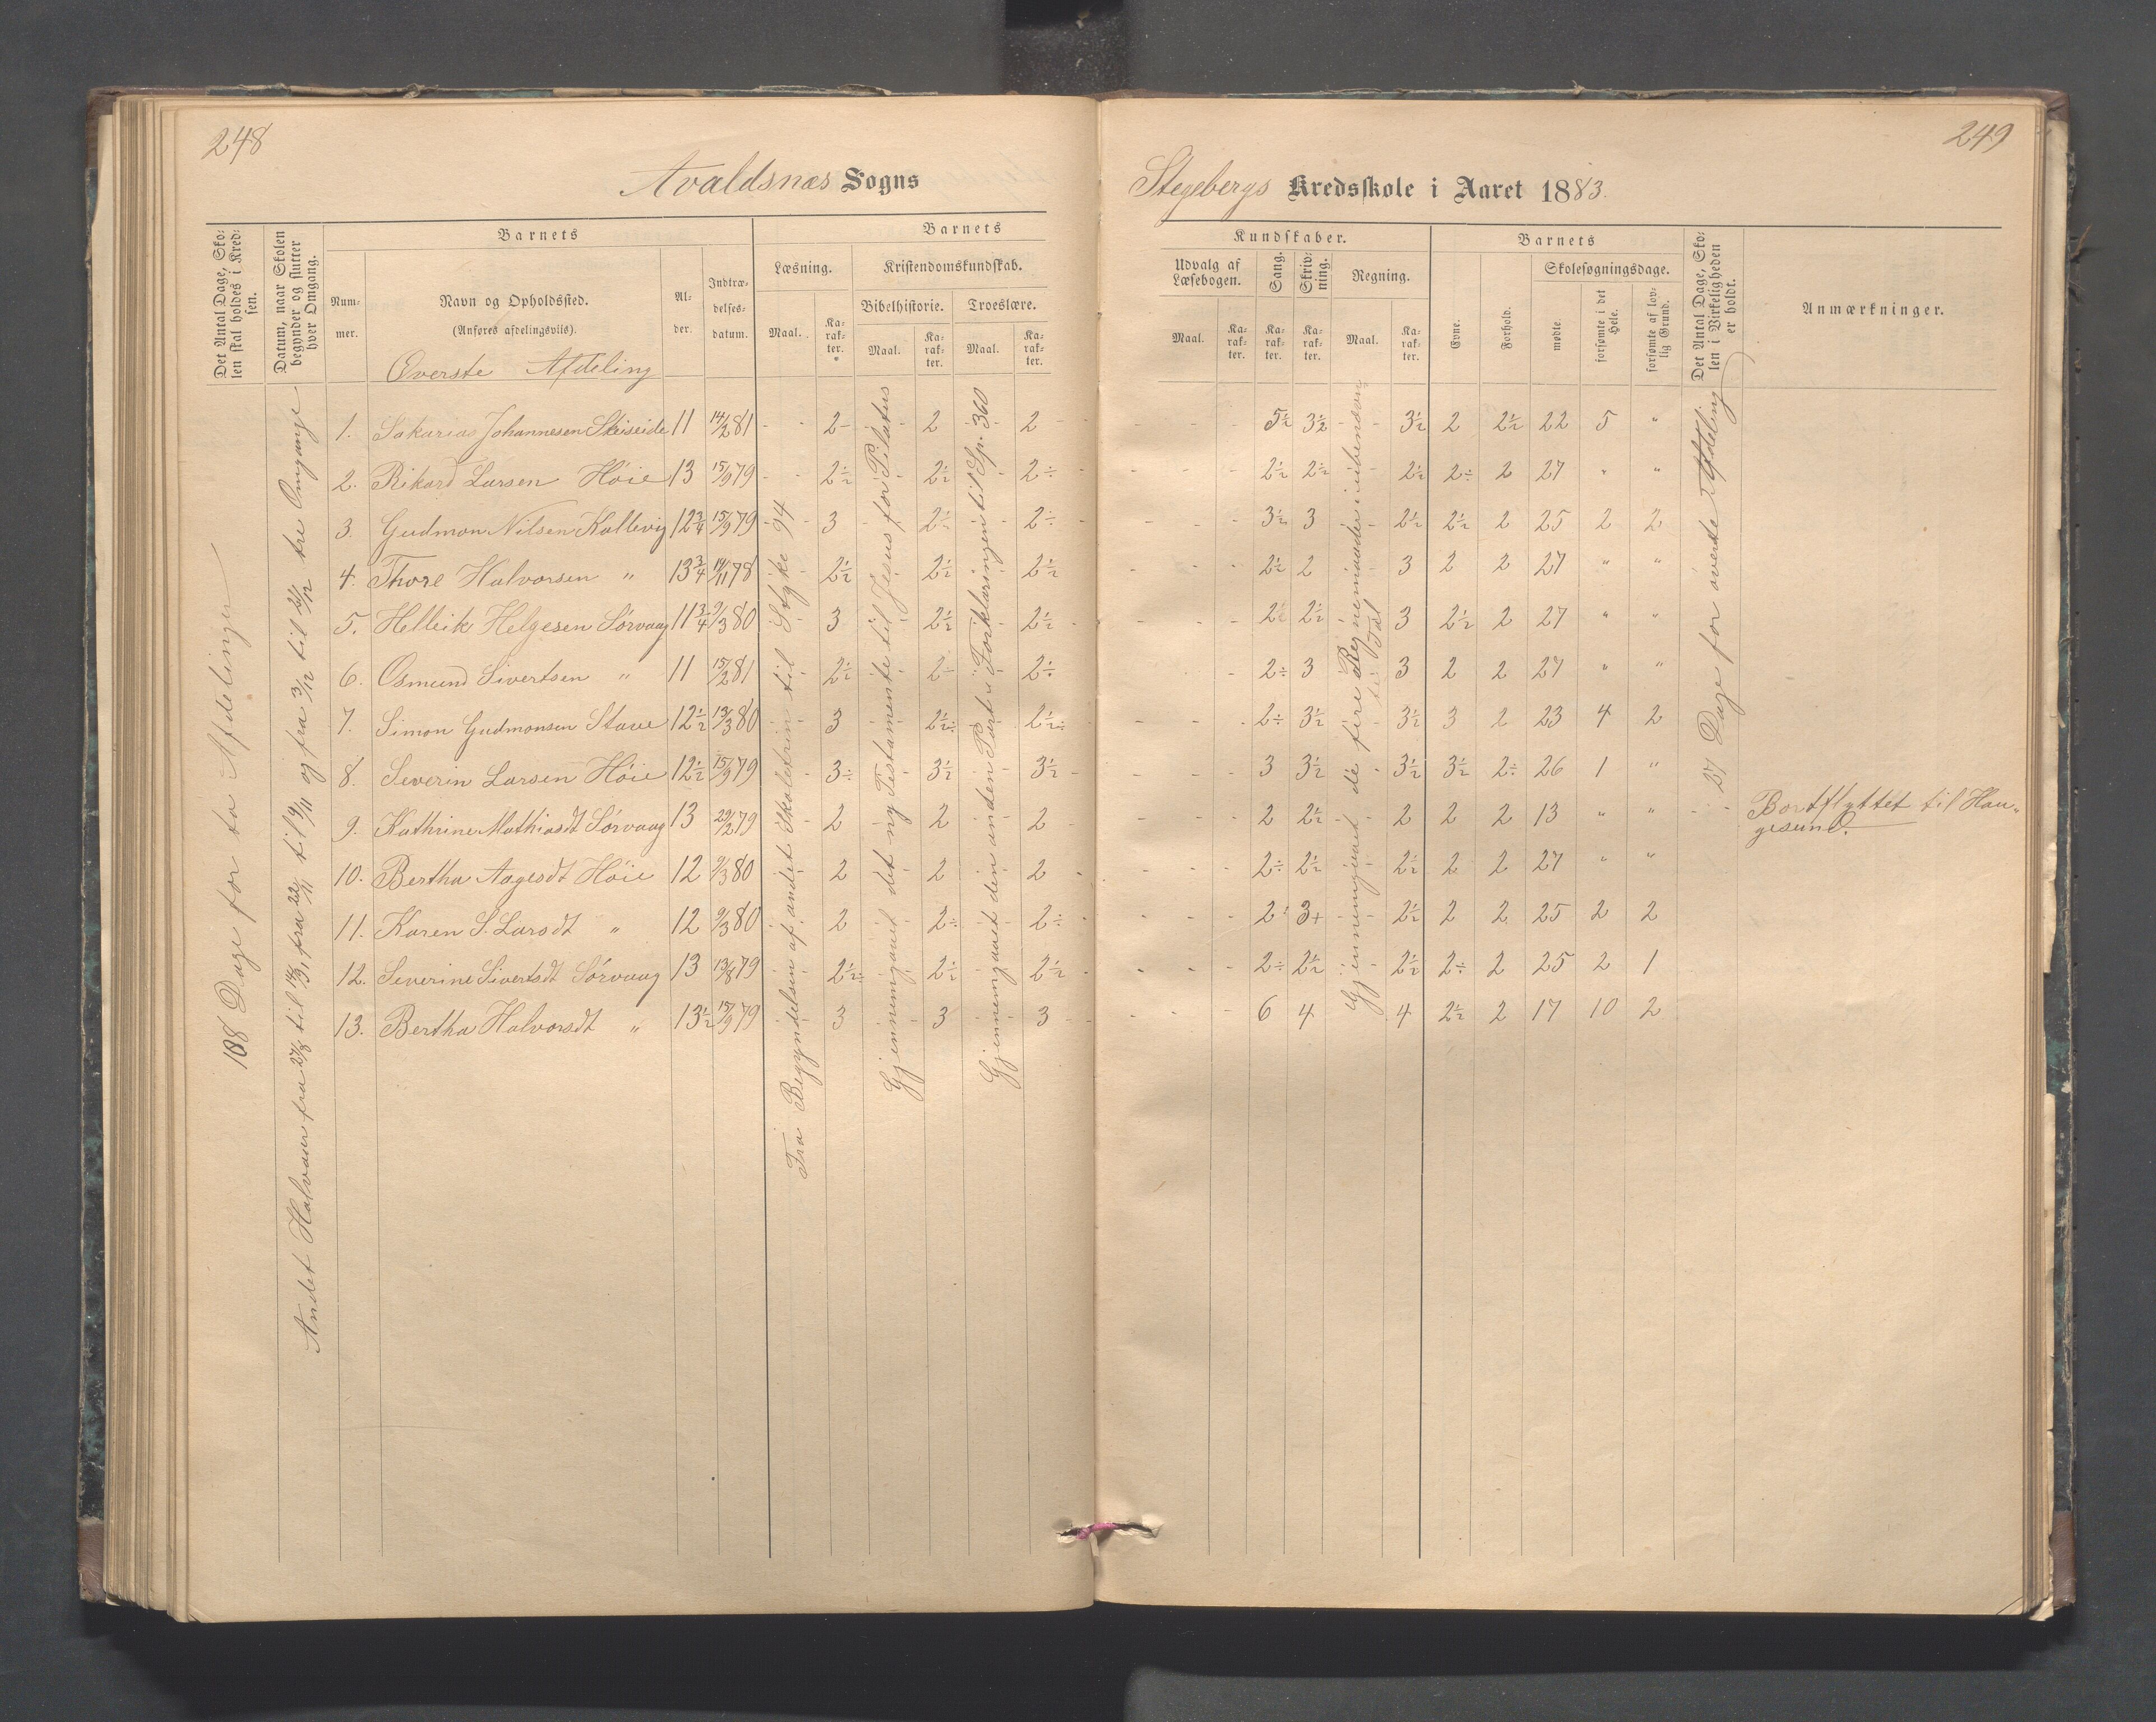 248
Avaldsnæs Sogns
Det Antal Dage, Sko-
len skal holdes i Kred-
sen.
Datum, naar Skolen
begynder og slutter
hver Omgang.
Barnets
Num-
mer.
Navn og Opholdssted.
(Anføres afdelingsvis).
Al-
der.
Indtræ-
delses-
datum.
Barnets
Læsning.
Maal.
Ka-
rak-
ter.
Kristendomskundskab.
Bibelhistorie.
Maal.
Ka-
rak-
ter.
Troeslære.
Maal.
Ka-
rak-
ter.
Øverste Afdeling
1. Sakarias Johannesen Skeiseide 11 14/2 81 2 2 2
2. Rikard Larsen Høie 13 15/9 79 2½ 2½ 2÷
3. Gudmon Nilsen Kallevig 12¾ 15/9 79 3 2½ 2÷
4. Thore Halvorsen " 13¾ 14/11 78 2½ 2½ 2½
5. Helleik Helgesen Sørvaag 11¾ 9/3 80 3 2½ 2½
6. Osmund Sivertsen " 11 15/2 81 2½ 2÷ 2÷
7. Simon Gudmonsen Stave 12½ 13/3 80 3 2½÷ 2½÷
8. Severin Larsen Høie 12½ 15/9 79 3÷ 3½ 3½
9. Kathrine Mathiasdt Sørvaag 13 29/2 79 2 2 2
10. Bertha Aagesdt Høie 12 9/3 80 2 2 2
11. Karen S. Larsdt " 12 9/3 80 2 2÷ 2÷
12. Severine Sivertsdt Sørvaag 13 13/8 79 2½÷ 2½ 2½
13. Bertha Halvorsdt " 13½ 15/9 79 3 3 3
108 Dage for to Afdelinger
Andet Halvaar fra 27/8 til , fra 22/11 til og fra 3/12 til 21/12 tre Omgange
Fra Begyndelsen af andet Skoletrin til Stykke 94
Gjennemgaaet det ny Testamente til Jesus for Pilatus
Gjennemgaaet den anden Part i Forklaringen til Sp. 360
249
Stegebergs Kredsskole i Aaret 1883.
Kundskaber.
Udvalg af
Læsebogen.
Maal.
Ka-
rak-
ter.
Sang.
Ka-
rak-
ter.
Skriv-
ning.
Ka-
rak-
ter.
Regning.
Maal.
Ka-
rak-
ter.
Barnets
Evne.
Forhold.
Skolesøgningsdage.
mødte.
forsømte i det
Hele.
forsømte af lov-
lig Grund.
Det Antal Dage, Sko-
len i Virkeligheden
er holdt.
Anmærkninger.
5½ 3½ 3½ 2 2½ 22 5 "
2½ 2½ 2½ 2÷ 2 27 " "
3½ 3 2½ 2½ 2 25 2 2
2½ 2 3 2 2 27 " "
2½ 2½ 3 2½ 2 27 " "
2÷ 3 3 2 2 27 " "
2÷ 3½ 3½ 3 2 23 4 2
3 3½ 3½ 3½ 2÷ 26 1 "
2 2½ 2 2 2 13 " " Bortflyttet til Hau-
gesund.
2÷ 2½ 2½ 2 2 27 " "
2 3+ 2½ 2 2 25 2 2
2÷ 2½ 2½ 2÷ 2 25 2 1
6 4 4 2½ 2 17 10 2
Gjennemgaaet de fire Regnemaader i ubenævnte
Tal
27 Dage for øverste Afdeling